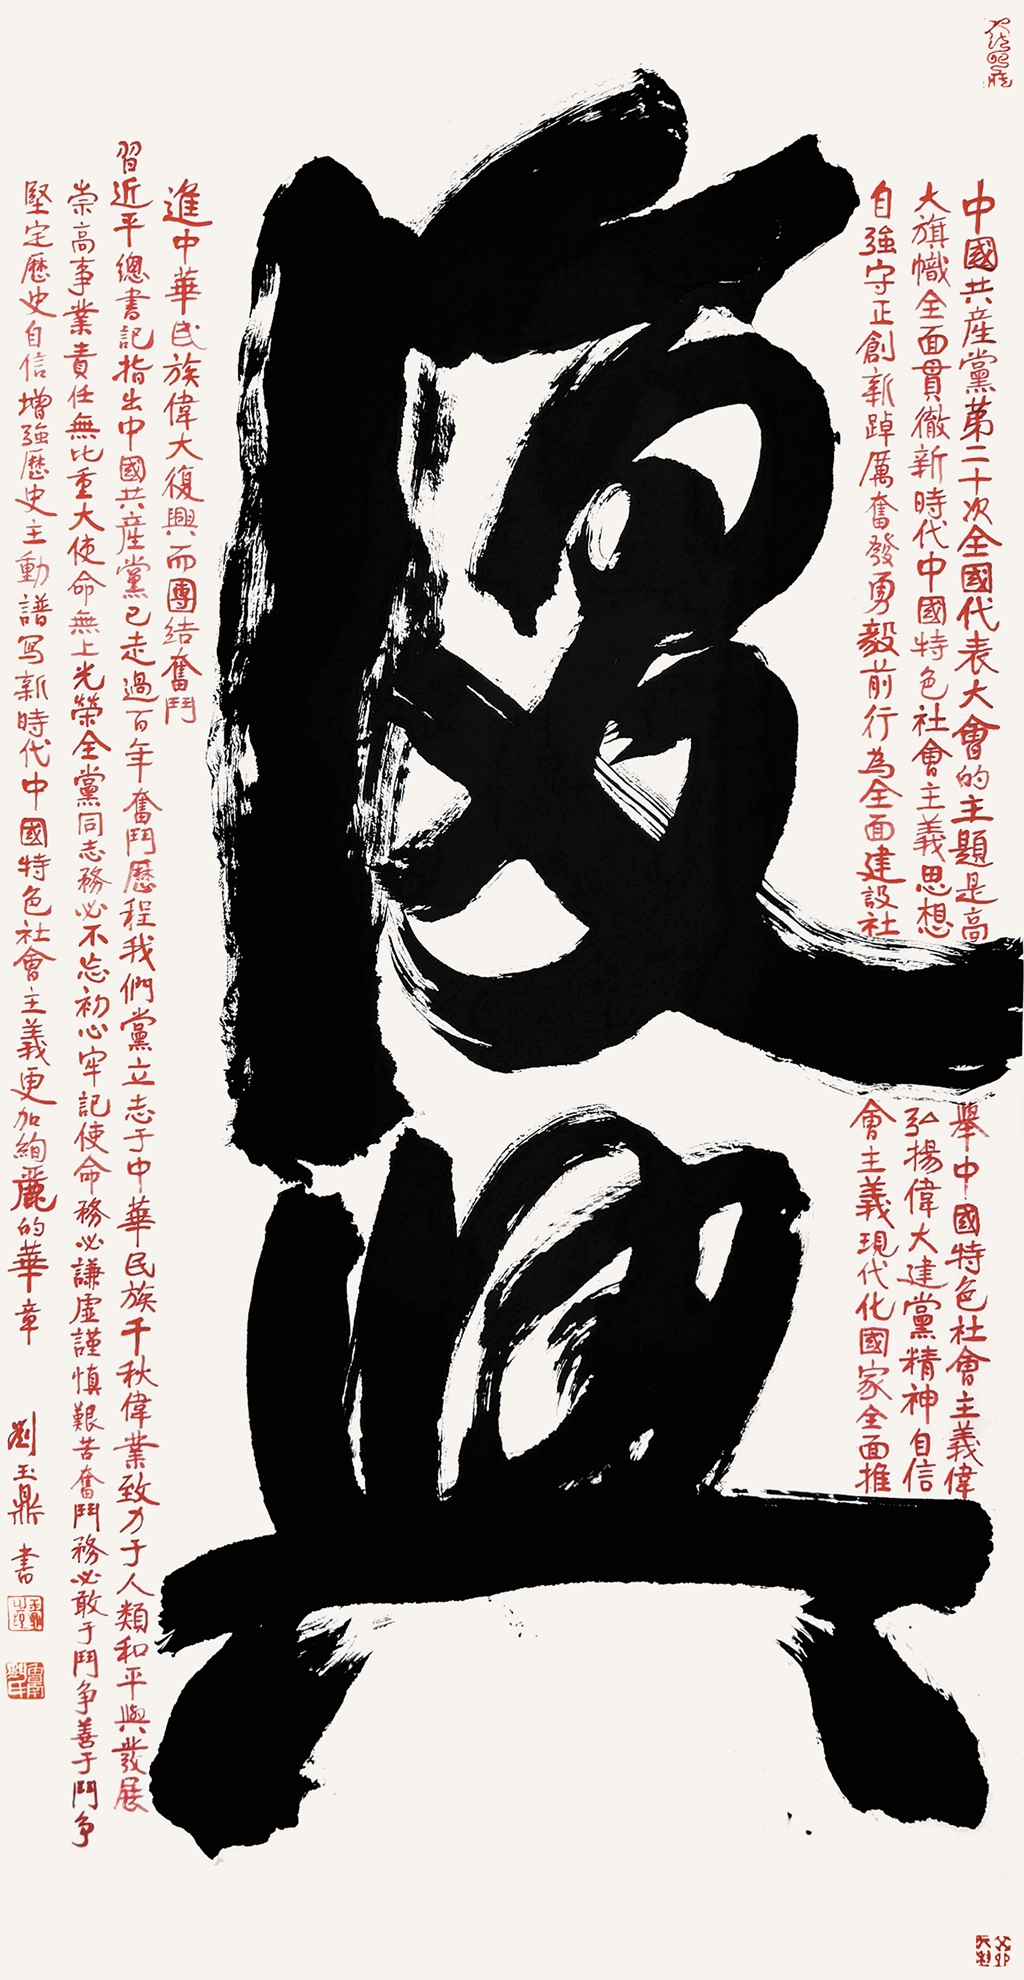 復興
中國共産黨第二十次全國代表大會的主題是高舉中國特色社會主義偉
大旗幟全面貫徹新時代中國特色社會主義思想弘揚偉大建黨精神自信
自強守正創新踔厲奮發勇毅前行為全面建設社會主義現代化國家全面推
進中華民族偉大復興而團结奮鬥
習近平總書記指出中國共産黨已走過百年奮鬥歷程我們黨立志于中華民族千秋偉業致力于人類和平與發展
崇高事業責任無比重大使命無上光榮全黨同志務必不忘初心牢記使命務必謙虛謹慎艱苦奮鬥務必敢于鬥争善于鬥争
堅定歷史自信增強歷史主動譜写新時代中國特色社會主義更加絢麗的華章
劉玉鼎書